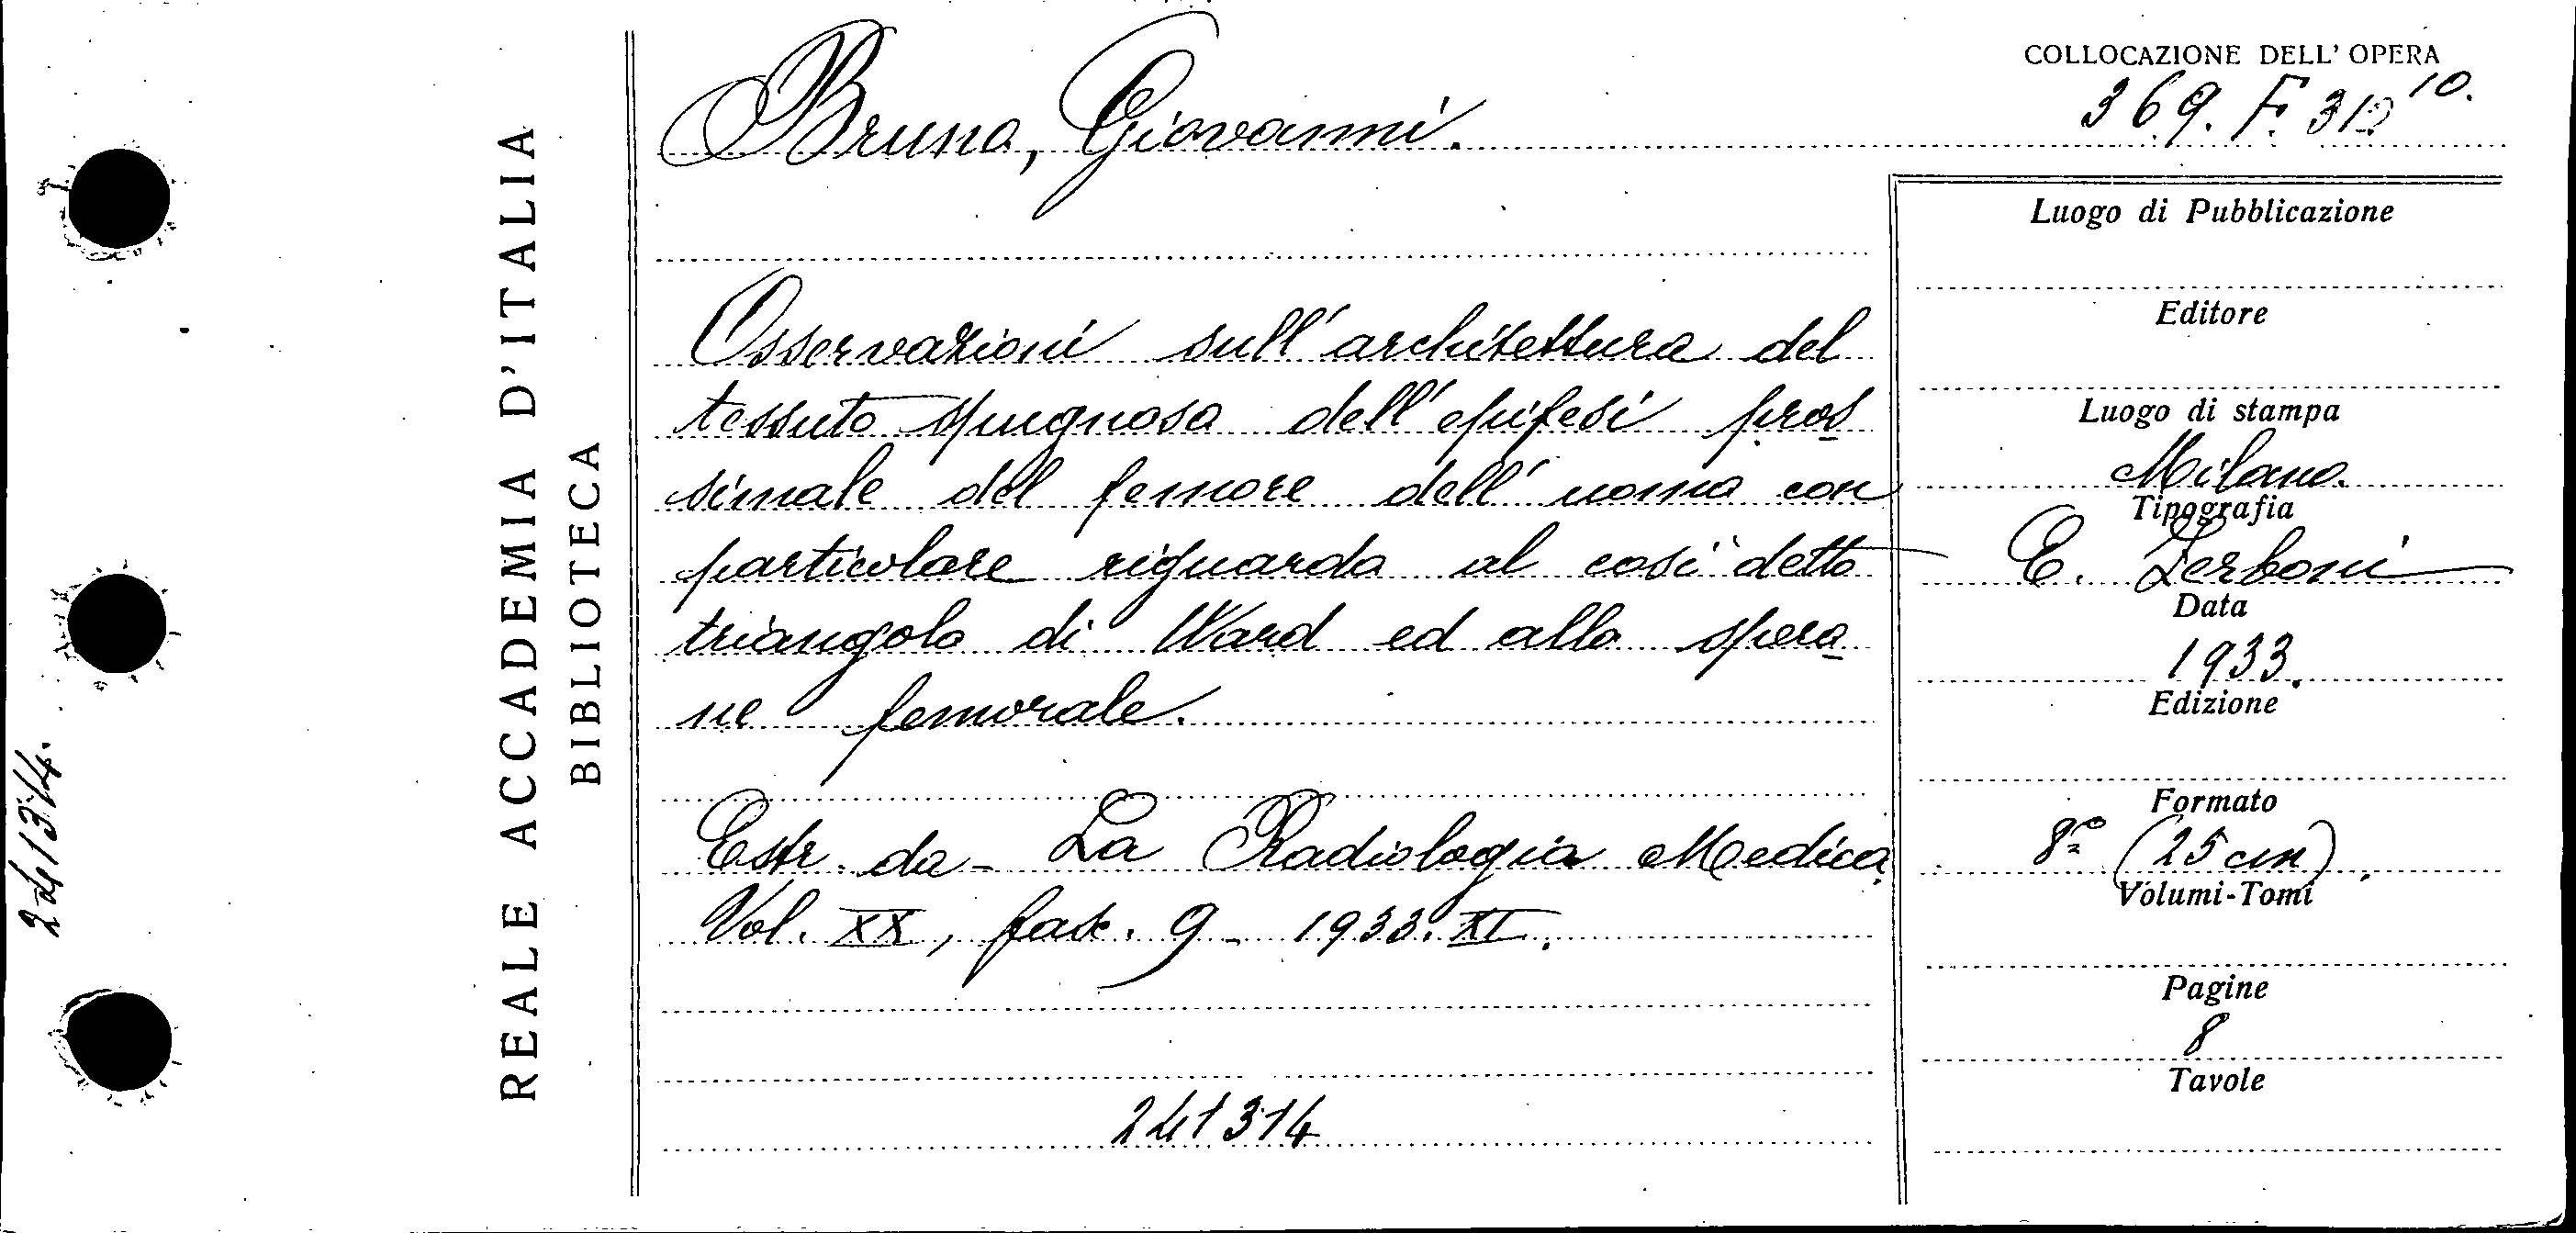 COLLOCAZIONE DELL' OPERA
Bruno, Giovanni.
369. F. 310 10.
REALE ACCADEMIA D'ITALIA
BIBLIOTECA
Osservazioni sull'architettura del
tessuto spugnoso dell'epifesi pros
simale del femore dell'uomo con
particolare riguardo al cosi detto
triangolo di Ward ed allo spero
ne femorale.
Estr. da - La Radiologia Medica
Vol. XX, fasc. 9 - 1933. XI.
241314
Luogo di Pubblicazione
Editore
Luogo di stampa
Milano.
Tipografia
E. Zerboni
Data
1933.
Edizione
Formato
8º (25 cm).
Volumi-Tomi
Pagine
8
Tavole
241314.